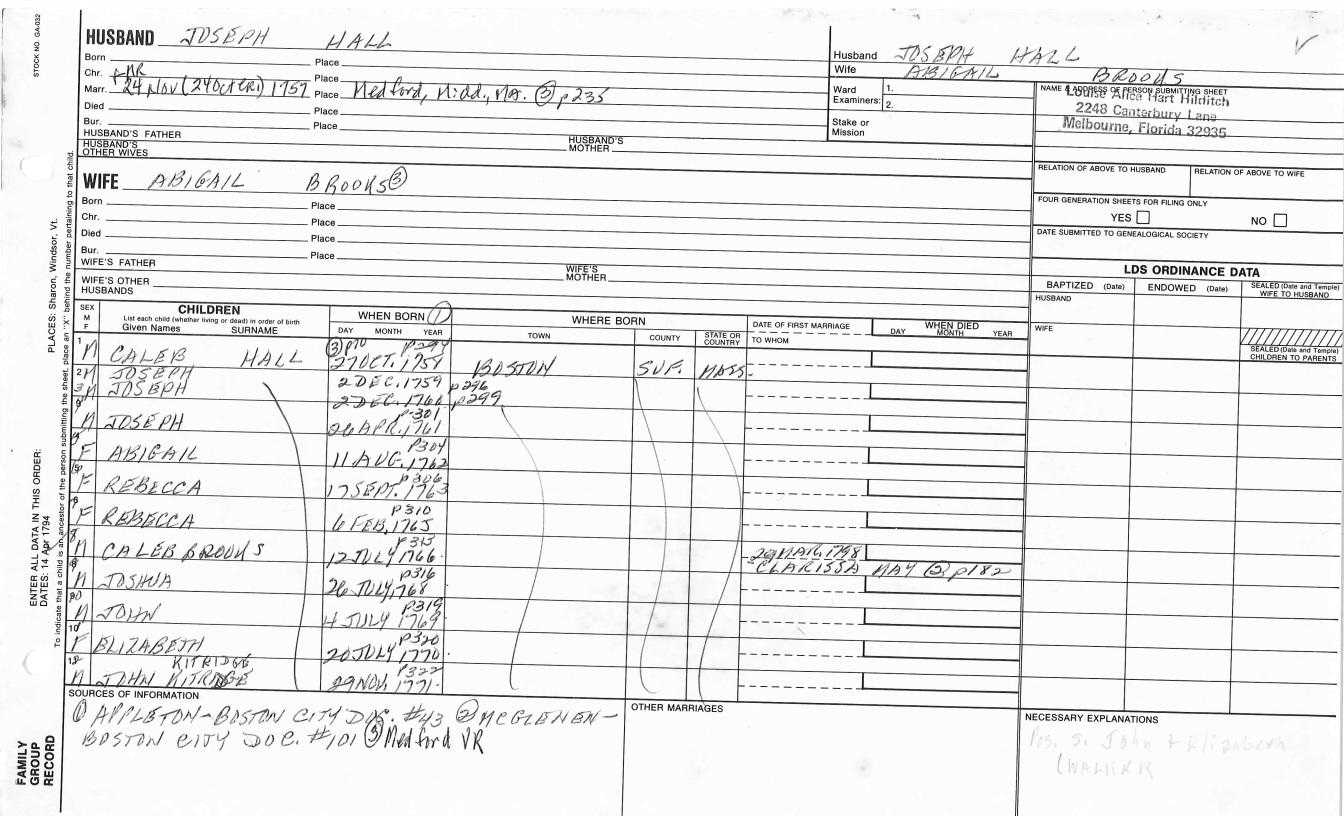 STOCK NO. GA-032
PLACES: Sharon, Windsor, Vt.
ENTER ALL DATA IN THIS ORDER:
DATES: 14 Apr 1794
To indicate that a child is an ancestor of the person submitting the sheet, place an "X" behind the number pertaining to that child.
FAMILY
GROUP
RECORD
HUSBAND JOSEPH HALL
Born Place
Chr. Place
Marr. 24 Nov (24 Oct CR1) 1757 Place Medford, Midd., Ma. ③ p235
Died Place
Bur. Place
HUSBAND'S FATHER
HUSBAND'S MOTHER
HUSBAND'S OTHER WIVES
WIFE ABIGAIL BROOKS ③
Born Place
Chr. Place
Died Place
Bur. Place
WIFE'S FATHER
WIFE'S MOTHER
WIFE'S OTHER HUSBANDS
Husband JOSEPH HALL
Wife ABIGAIL BROOKS
Ward Examiners: 1.
2.
Stake or Mission
NAME & ADDRESS OF PERSON SUBMITTING SHEET
Louise Alice Hart Hilditch
2248 Canterbury Lane
Melbourne, Florida 32935
RELATION OF ABOVE TO HUSBAND RELATION OF ABOVE TO WIFE
FOUR GENERATION SHEETS FOR FILING ONLY
YES NO
DATE SUBMITTED TO GENEALOGICAL SOCIETY
LDS ORDINANCE DATA
BAPTIZED (Date) ENDOWED (Date) SEALED (Date and Temple) WIFE TO HUSBAND
HUSBAND
WIFE
SEALED (Date and Temple) CHILDREN TO PARENTS
SEX M F
CHILDREN
List each child (whether living or dead) in order of birth
Given Names SURNAME
WHEN BORN ①
DAY MONTH YEAR
WHERE BORN
TOWN COUNTY STATE OR COUNTRY
DATE OF FIRST MARRIAGE
TO WHOM
WHEN DIED
DAY MONTH YEAR
1 M CALEB HALL ③ p70 p294 27 OCT. 1758 BOSTON SUF. MASS.
2 M JOSEPH 2 DEC. 1759 p296
3 M JOSEPH 2 DEC. 1760 p299
M JOSEPH p301 26 APR. 1761
F ABIGAIL p304 11 AUG. 1762
F REBECCA p306 17 SEPT. 1763
F REBECCA p310 6 FEB. 1765
M CALEB BROOKS p313 12 JULY 1766 29 MAR. 1798 CLARISSA MAY ② p182
M JOSHUA p316 26 JULY, 1768
M JOHN p319 4 JULY 1769
F ELIZABETH p320 20 JULY 1770
M JOHN KITRIDGE p322 29 NOV. 1771
SOURCES OF INFORMATION
① APPLETON-BOSTON CITY DOC. #43 ② MCGLENEN-
BOSTON CITY DOC. #101 ③ Medford VR
OTHER MARRIAGES
NECESSARY EXPLANATIONS
Pos. s. John & Elizabeth
(WALKER